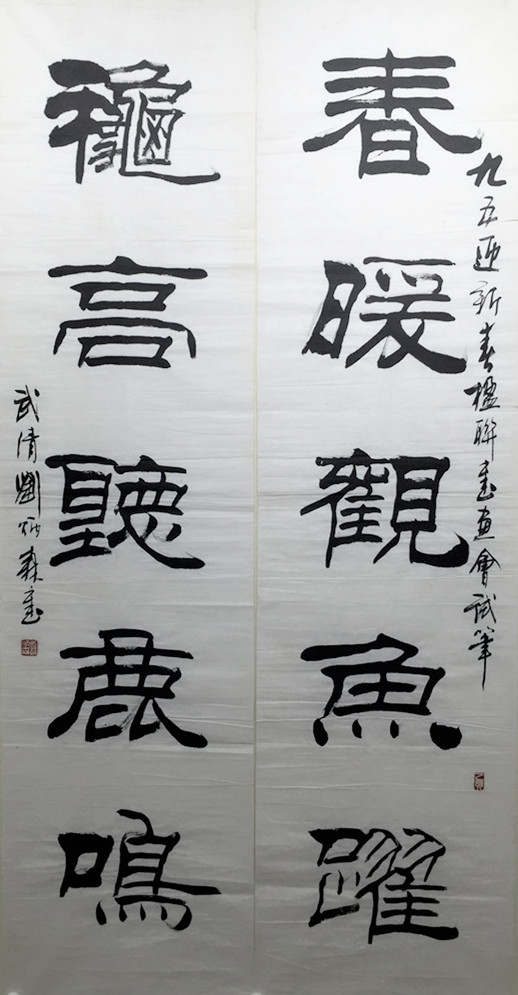 九五迎新春楹聯書畫會試筆
春暖觀魚躍
龝高聽鹿鳴
武清劉炳森書